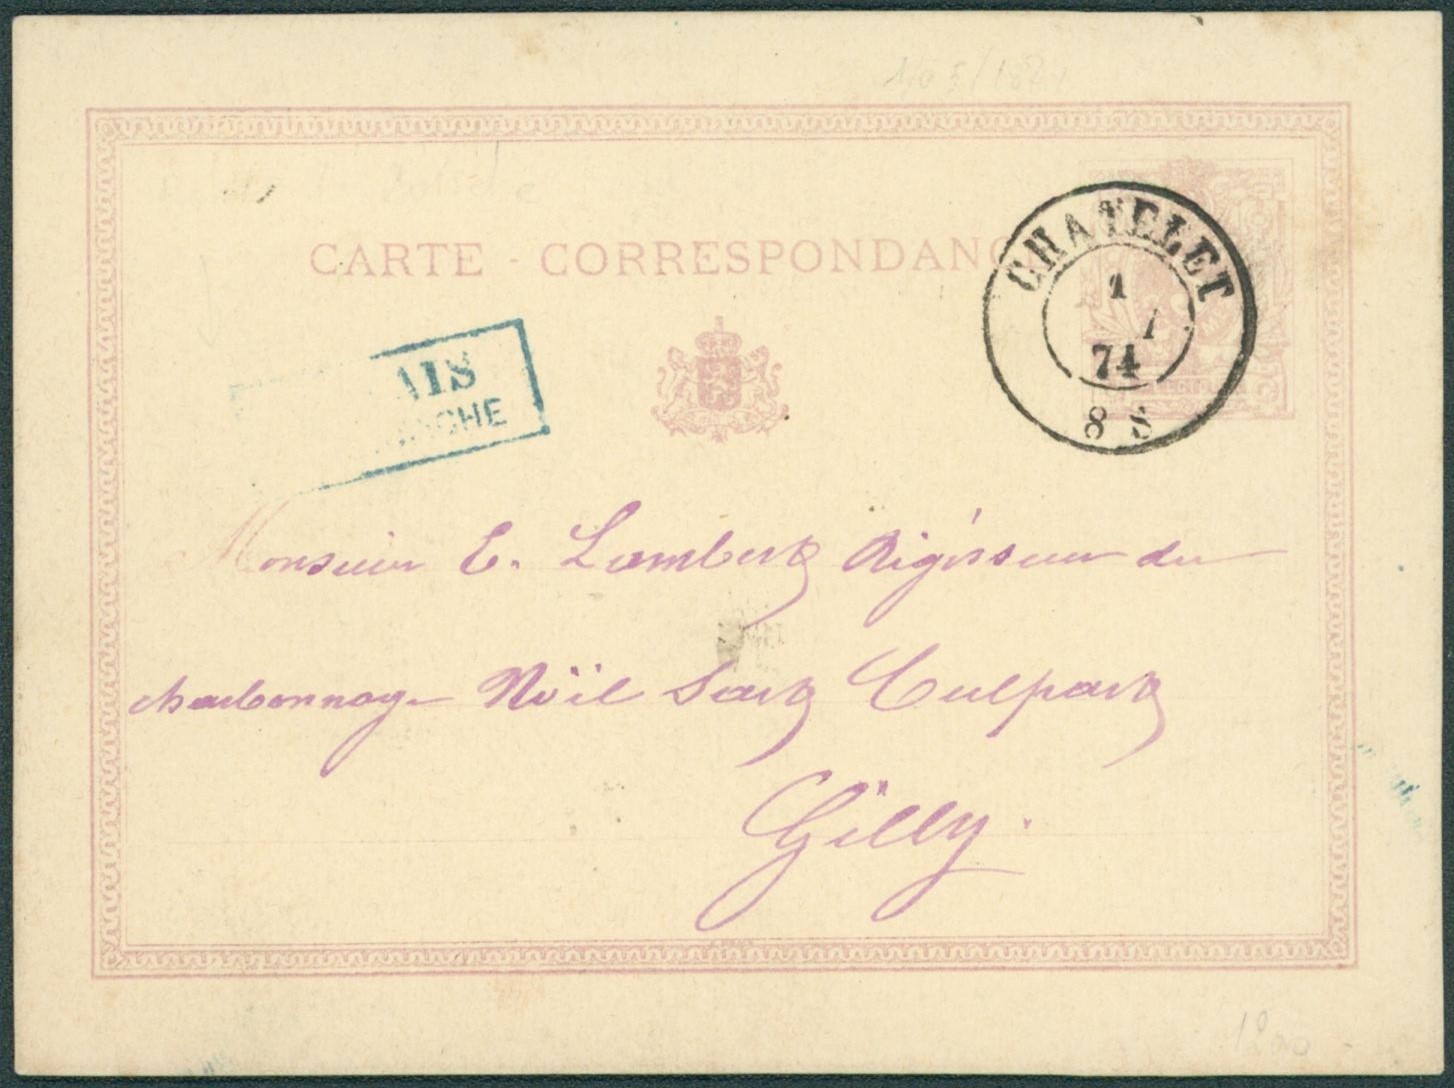 CARTE - CORRESPONDANC
CHATELET
1
1
74
8 S
AIS
CHE
Monsieur E. Lambert Régisseur du
charbonnage Noël Sart Culpart
Gilly.
1200